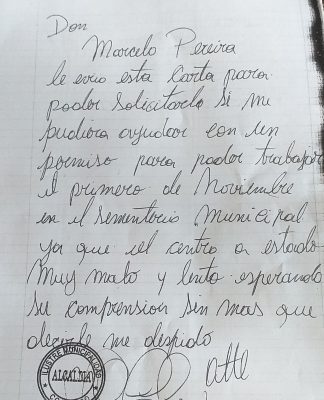 Don
Marcelo Pereira
le envio esta Carta para
poder Solicitarlo Si me
pudiera ayudar con un
permiso para poder trabajar
el primero de Noviembre
en el sementerio Municipal
ya que el centro a estado
Muy malo y lento esperando
su comprension sin mas que
decirle me despido
atte
ILUSTRE MUNICIPALIDAD
ALCALDIA